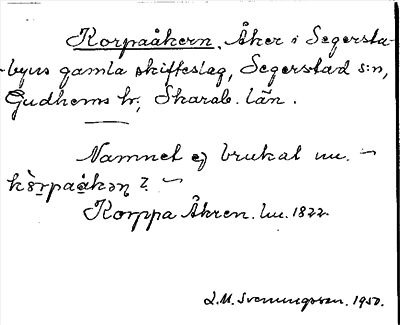 Korpaåkern. Åker i Segersta-
byns gamla skifteslag, Segerstad s:n,
Gudhems hr, Skarab. län.
Namnet ej brukat nu. –
kòrpaåkəɳ ? –
Korppa Åkren. lu. 1822.
L.M. Svenungsson. 1950.